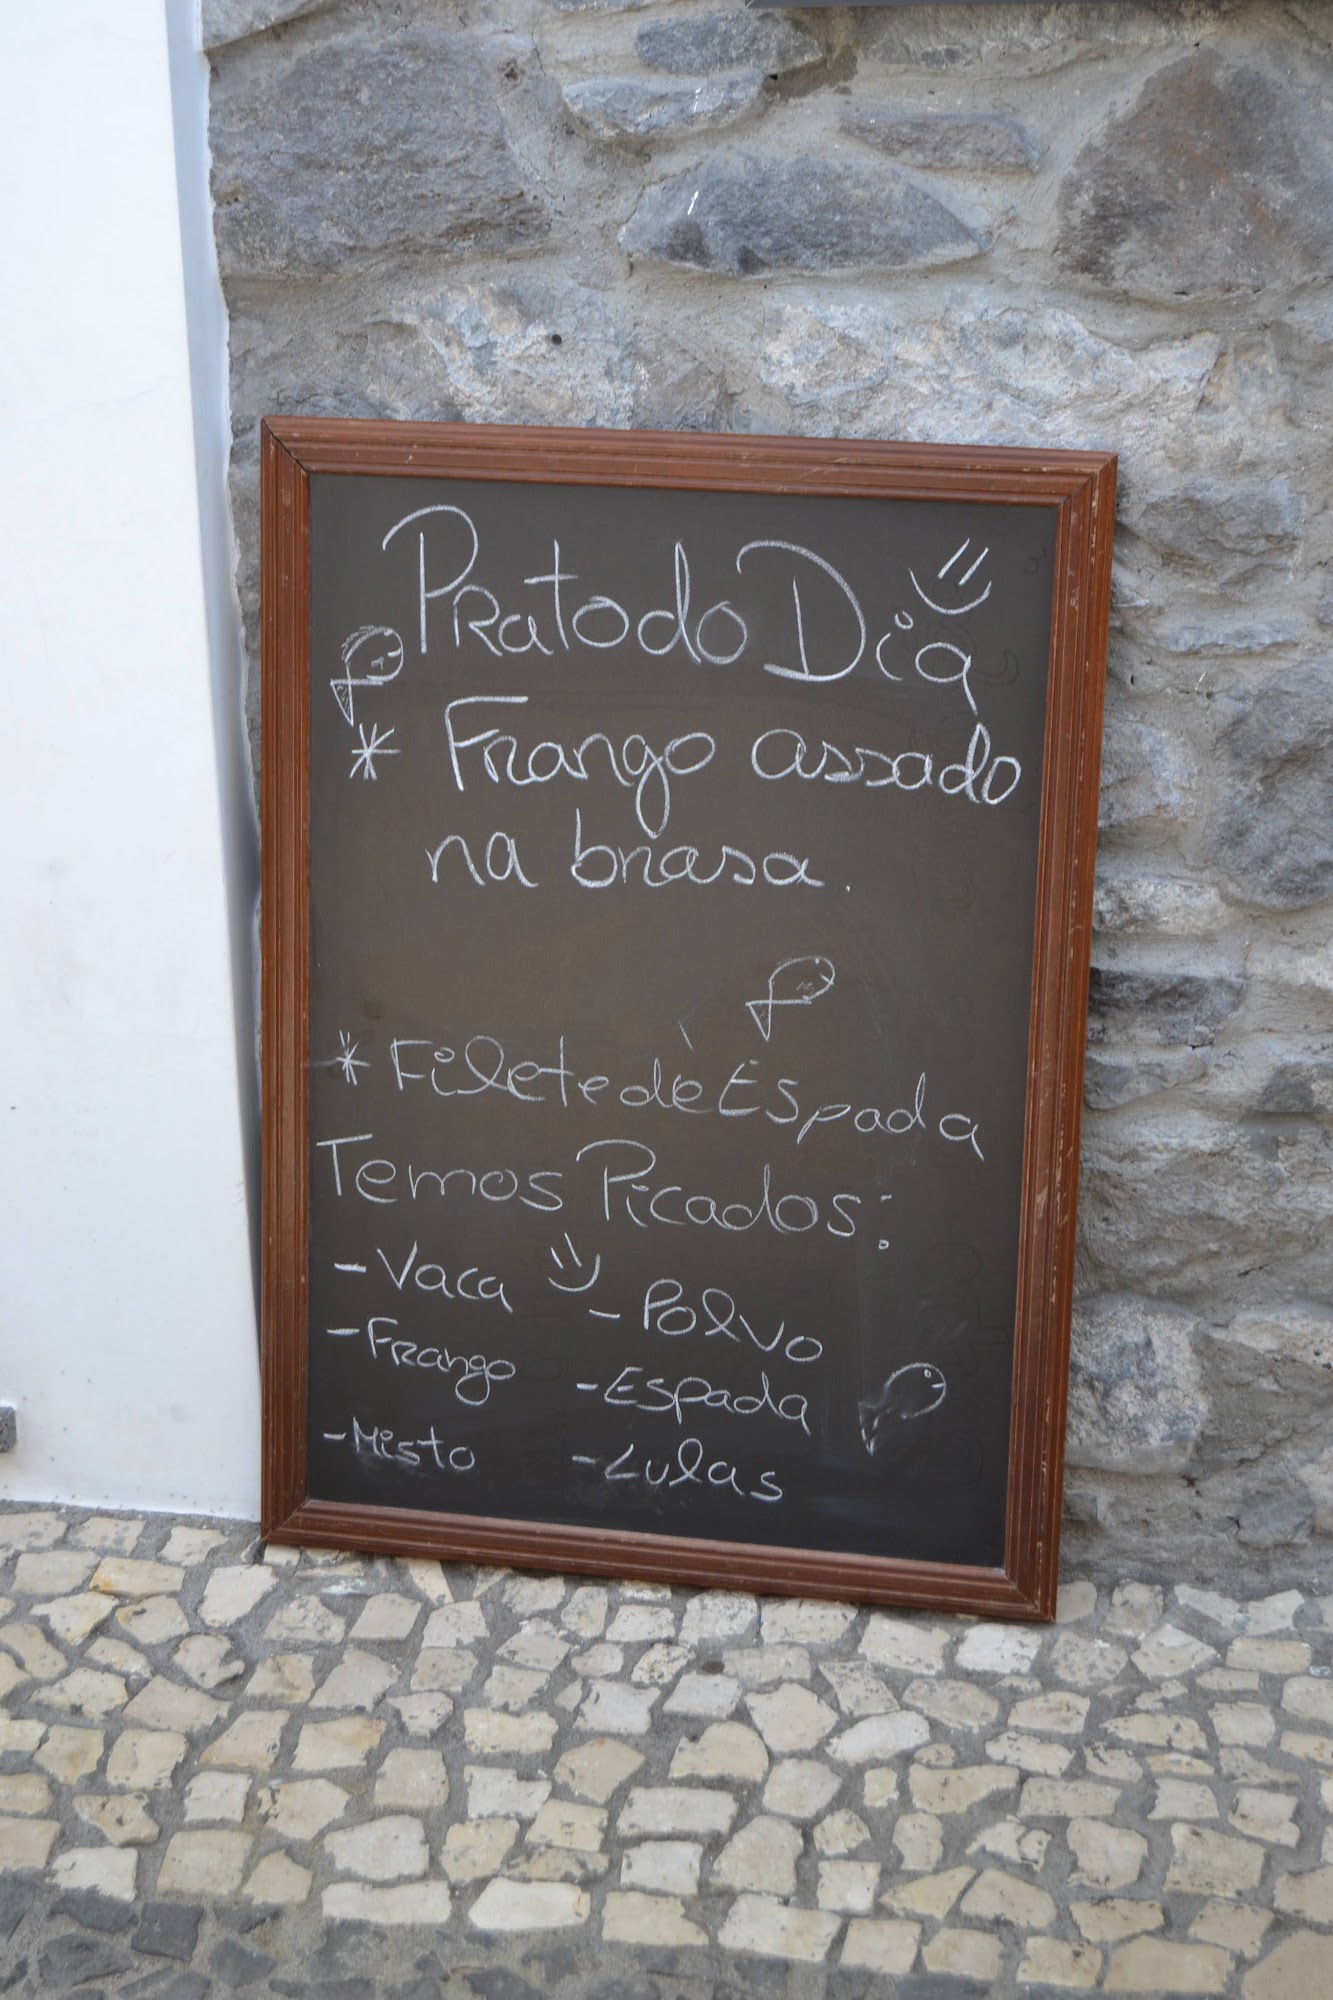 Prato do Dia
* Frango assado
na brasa.
* Filete de Espada
Temos Picados:
- Vaca
- Polvo
- Frango
- Espada
- Misto
- Lulas